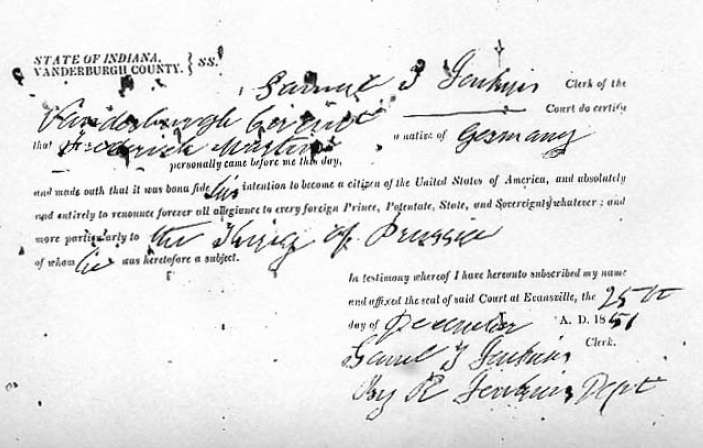 STATE OF INDIANA, } SS.
VANDERBURGH COUNTY.
Samuel T Jenkins Clerk of the
Vanderburgh Circuit Court do certify
that Frederick a native of Germany
personally came before me this day,
and made outh that it was bona fide his intention to become a citizen of the United States of America, and absolutely
and entirely to renounce forever all allegiance to every foreign Prince, Potentate, State, and Sovereignty whatever; and
more particularly to the King of Prussia
of whom he was heretofore a subject.
In testimony whereof I have hereunto subscribed my name
and affixed the seal of said Court at Evansville, the 25th
day of December A. D. 1851
Clerk.
Saml T Jenkins
By R Jenkins Dept